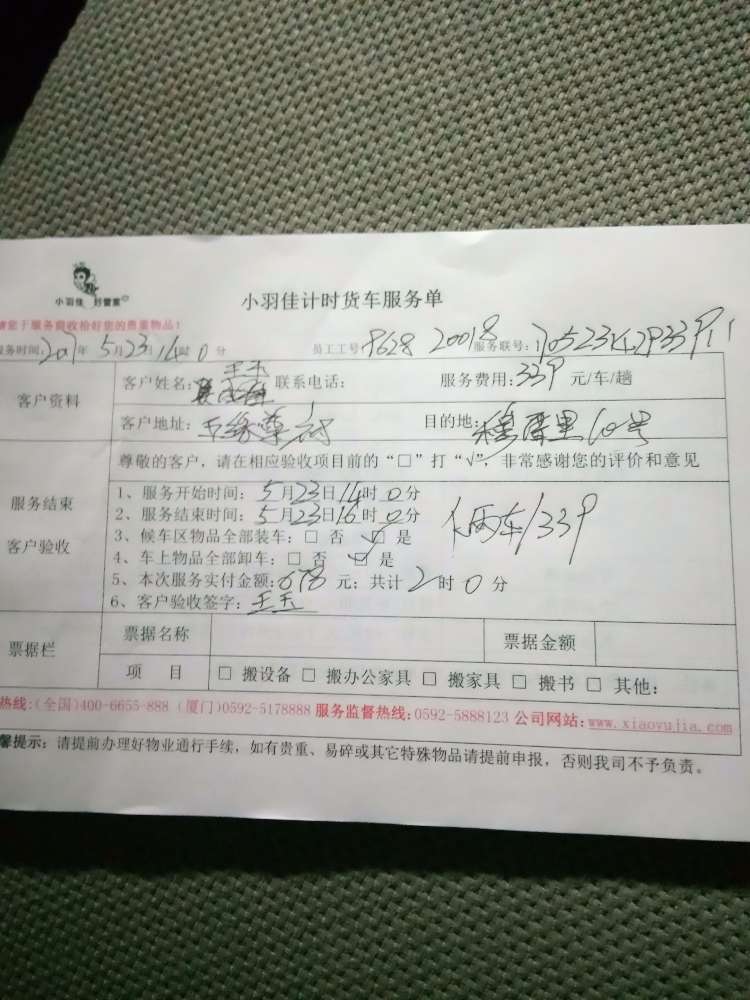 小羽佳 好管家
小羽佳计时货车服务单
请您于服务前收拾好您的贵重物品!
服务时间: 年 5月23日14时0分 员工工号: 8628 20018 服务联号:
客户资料
客户姓名: 王玉 联系电话: 服务费用:339 元/车/趟
客户地址: 目的地:
尊敬的客户，请在相应验收项目前的“□”打“√”，非常感谢您的评价和意见
服务结束
客户验收
1、服务开始时间: 5月23日14时0分
2、服务结束时间: 5月23日16时0分
3、候车区物品全部装车: □ 否 ☑ 是
4、车上物品全部卸车: □ 否 ☑ 是
5、本次服务实付金额: 678 元; 共计 2 时 0 分
6、客户验收签字: 王玉
俩车/339
票据栏
票据名称 票据金额
项 目 □ 搬设备 □ 搬办公家具 □ 搬家具 □ 搬书 □ 其他:
热线:(全国)400-6655-888 (厦门)0592-5178888 服务监督热线:0592-5888123 公司网站:www.xiaoyujia.com
馨提示: 请提前办理好物业通行手续，如有贵重、易碎或其它特殊物品请提前申报，否则我司不予负责。